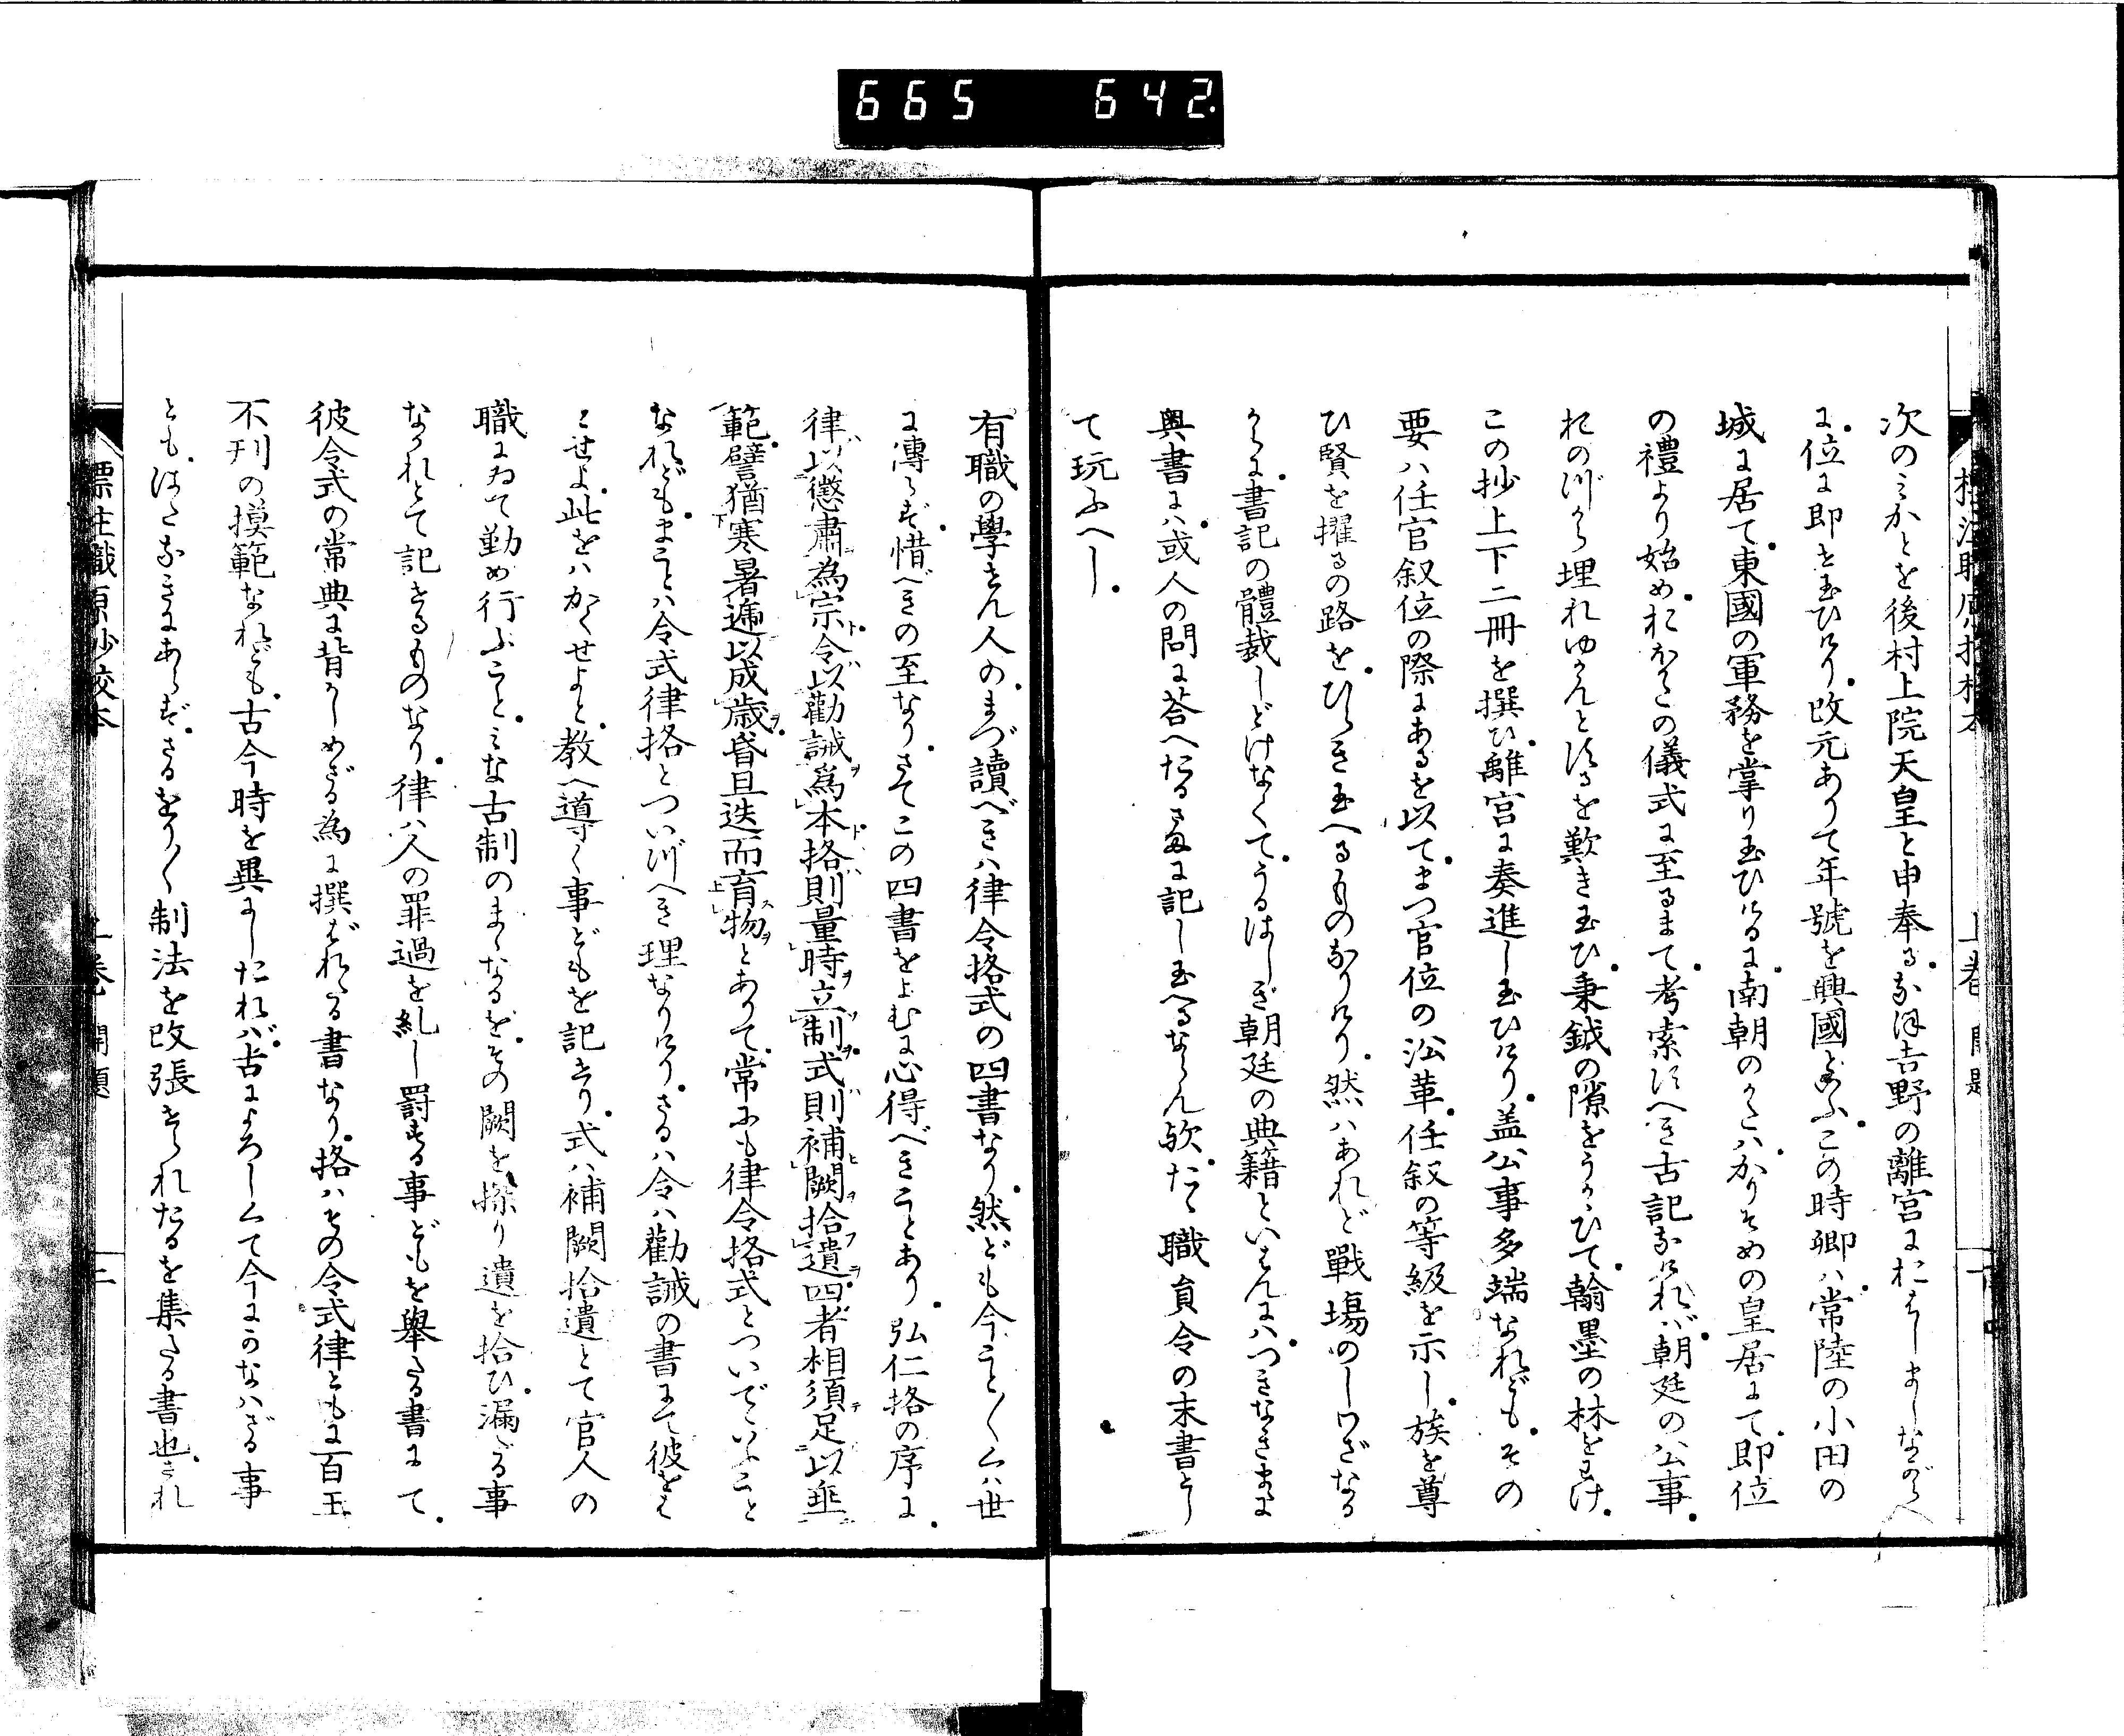 665 642
次のみかとを後村上院天皇と申奉る。なほ吉野の離宮におはしましながらへ
に。位に即せ玉ひけり。改元ありて年號を興國といふ。この時卿ハ。常陸の小田の
城に居て。東國の軍務を掌り玉ひけるに。南朝のかたハ。かりそめの皇居にて。即位
の禮より始め。おほくの儀式に至るまて。考索すへき古記なけれバ。朝廷の公事。
おのづから埋れゆかんとするを歎き玉ひ。秉鉞の隙をうかゝひて。翰墨の林をわけ。
この抄上下二冊を撰ひ。離宮に奏進し玉ひけり。盖公事多端なれども。その
要ハ任官叙位の際にあるを以て。まつ官位の沿革。任叙の等級を示し。族を尊
ひ賢を擢るの路を。ひらき玉へるものなりけり。然ハあれど戰塲のしわざなる
からに。書記の體裁しどけなくて。うるはしき朝廷の典籍といはんにハ。つきなきまゝに
奥書にハ。或人の問に荅へたるさまに記し玉へるならん欤。たゝ職員令の末書とし
て玩ふへし。
有職の學せん人の。まづ讀べきハ律令格式の四書なり。然ども今ことごとくハ世
に傳らず。惜べきの至なり。さてこの四書をよむに心得べきことあり。弘仁格の序に。
律ハ以懲肅為宗。令ハ以勸誡為本。格ハ則量時立制。式ハ則補闕拾遺。四者相須足以垂
範。譬猶寒暑遞以成歳。昏旦迭而育物とありて。常にも律令格式とついでいふこと
なれども。まことハ令式律格とついづへき理なりけり。さるハ令ハ勸誡の書にて彼をも
こせよ。此をハかくせよと。教へ導く事どもを記せり。式ハ補闕拾遺とて官人の
職にゐて勤め行ふこと。みな古制のまゝなるを。その闕を探り遺を拾ひ。漏たる事
なかれとて記せるものなり。律ハ人の罪過を糺し罸する事どもを舉たる書にて。
彼令式の常典に背かしめざる為に撰ばれたる書なり。格ハその令式律ともに百王
不刊の摸範なれども。古今時を異にしたれバ。古によろしくて今にかなハざる事
とも。はたなきにあらず。さるをりをり制法を改張せられたるを集たる書也。され
標注職原抄校本 上巻 開題 二